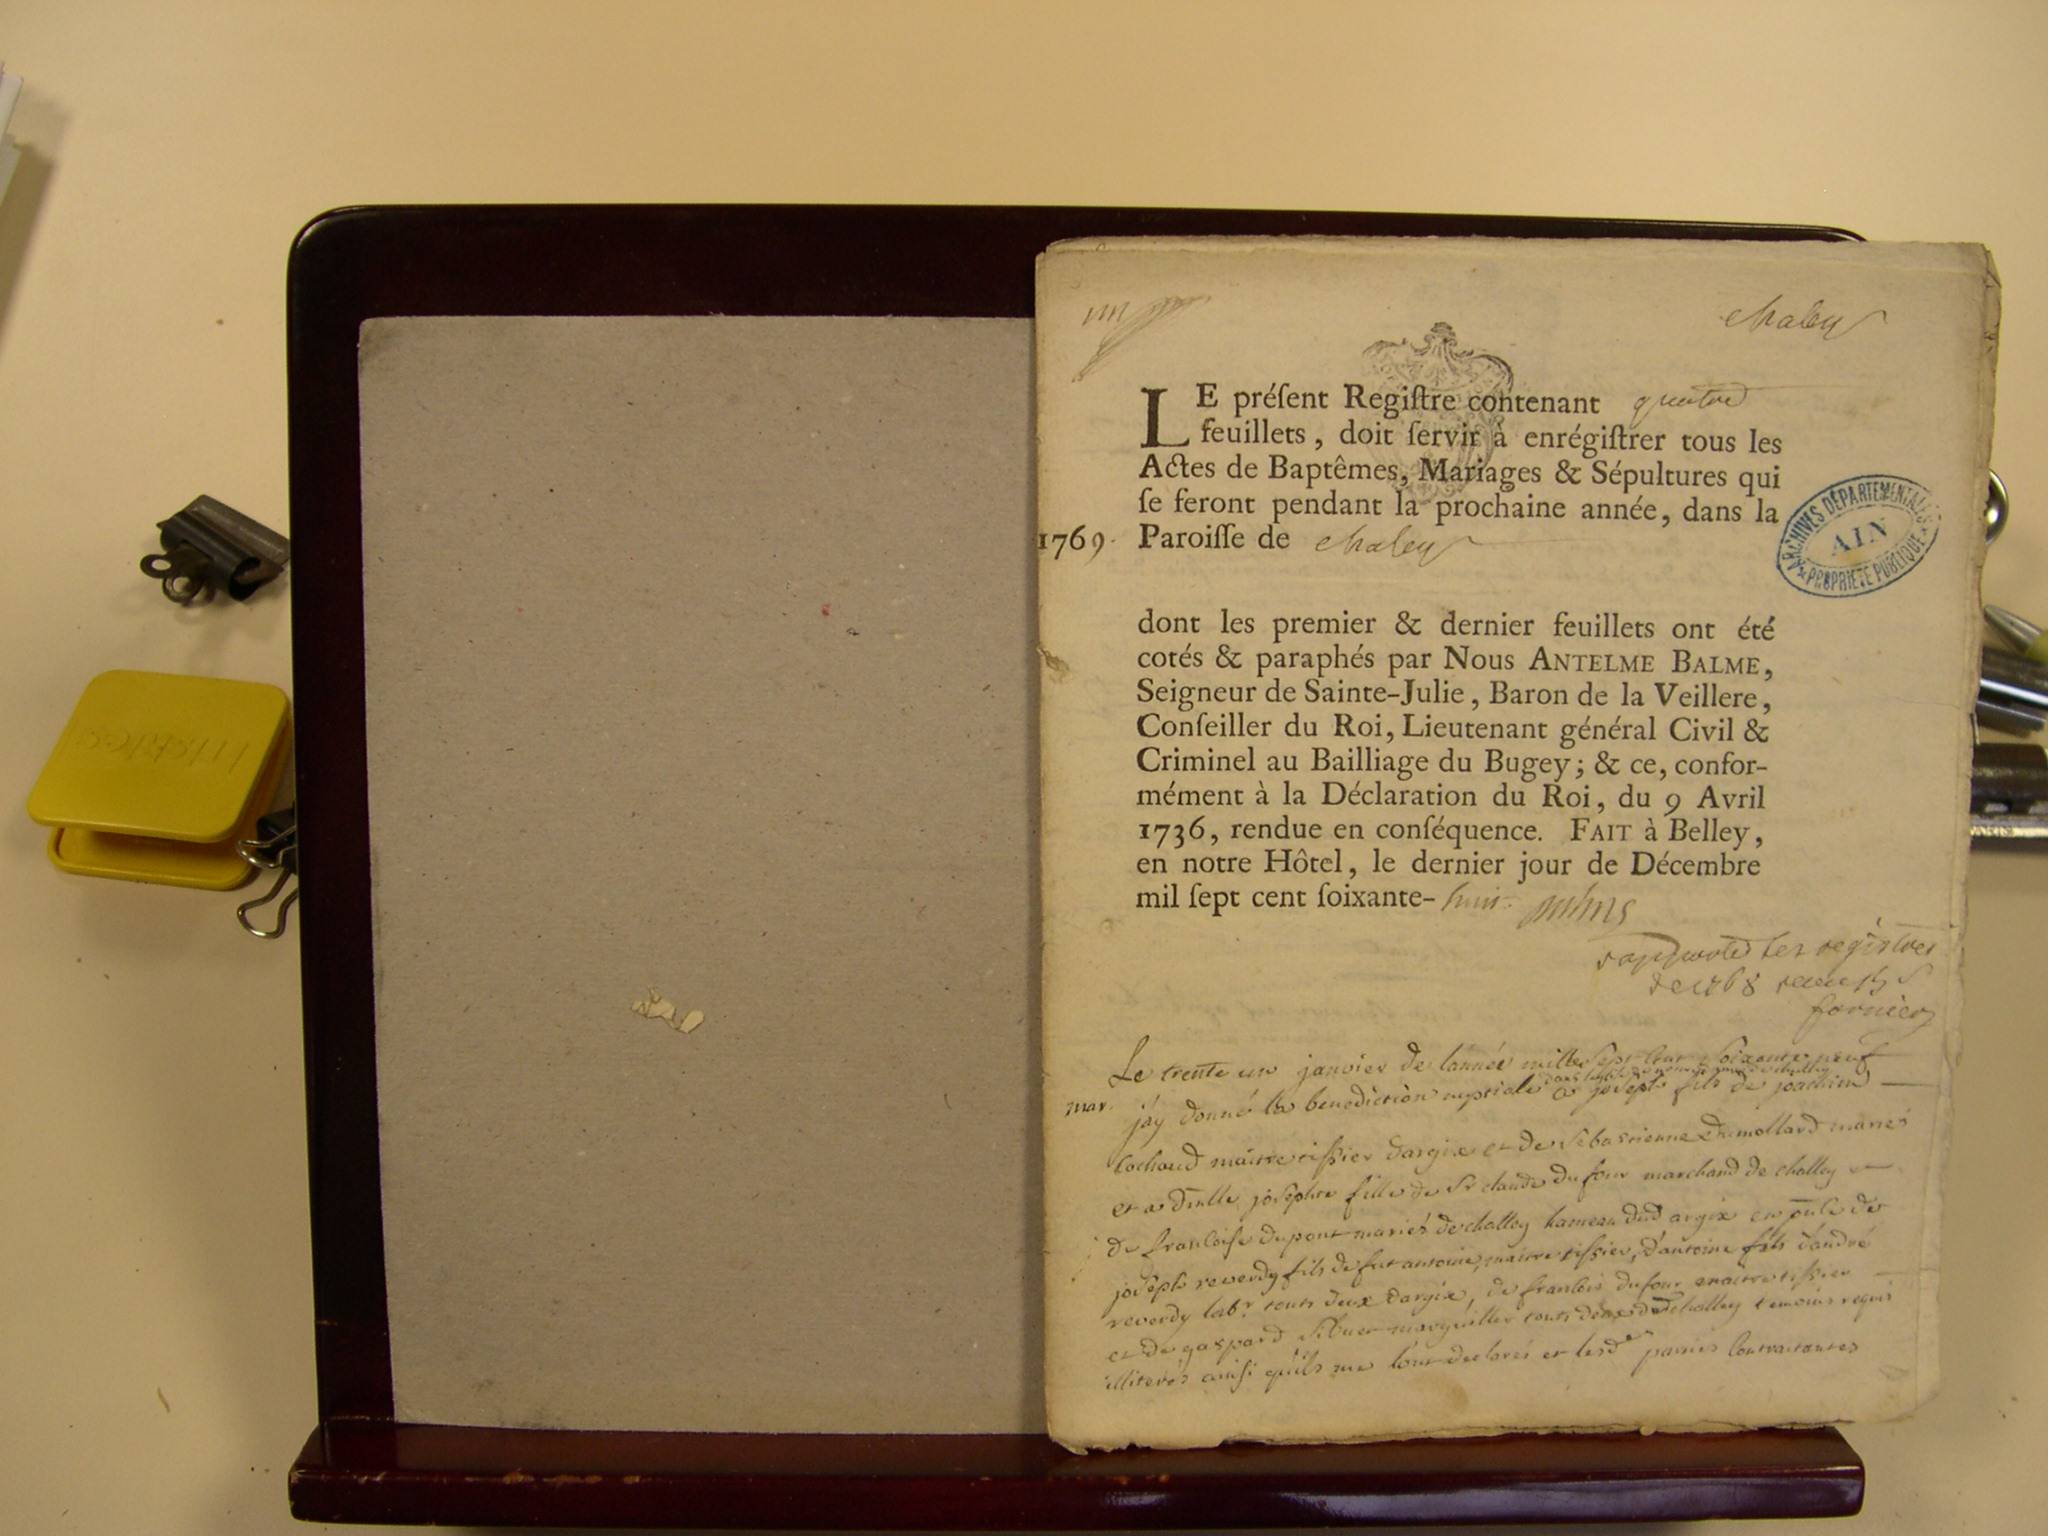 un
chaley
LE préſent Regiſtre contenant quatre
feuillets, doit ſervir à enrégiſtrer tous les
Actes de Baptêmes, Mariages & Sépultures qui
ſe feront pendant la prochaine année, dans la
1769. Paroiſſe de chaley
ARCHIVES DÉPARTEMENTALES
AIN
PROPRIÉTÉ PUBLIQUE
dont les premier & dernier feuillets ont été
cotés & paraphés par Nous ANTELME BALME,
Seigneur de Sainte-Julie, Baron de la Veillere,
Conſeiller du Roi, Lieutenant général Civil &
Criminel au Bailliage du Bugey; & ce, confor-
mément à la Déclaration du Roi, du 9 Avril
1736, rendue en conſéquence. FAIT à Belley,
en notre Hôtel, le dernier jour de Décembre
mil ſept cent ſoixante-huit.
rapporté les registres
de 1768
Le trente un janvier de lannée mille sept cent soixante neuf
mar. jáy donné la benediction nuptiale à joseph fils de joachim
cochoud maitre tissier dargix et de sebastienne dumollard mariés
et a dlle josephte fille de Sr claude dufour marchand de challey et
de francoise dupont mariés de challey hameau dud argix en pnce de
joseph reverdy fils de fut antoine, maitre tissier, d'antoine fils d'andré
reverdy labr touts deux dargix, de francois dufour maitre tissier
et de gaspard marguillier touts deux dud challey temoins requis
illiterés ainsi quils me l'ont declarés et lesd parties contractantes